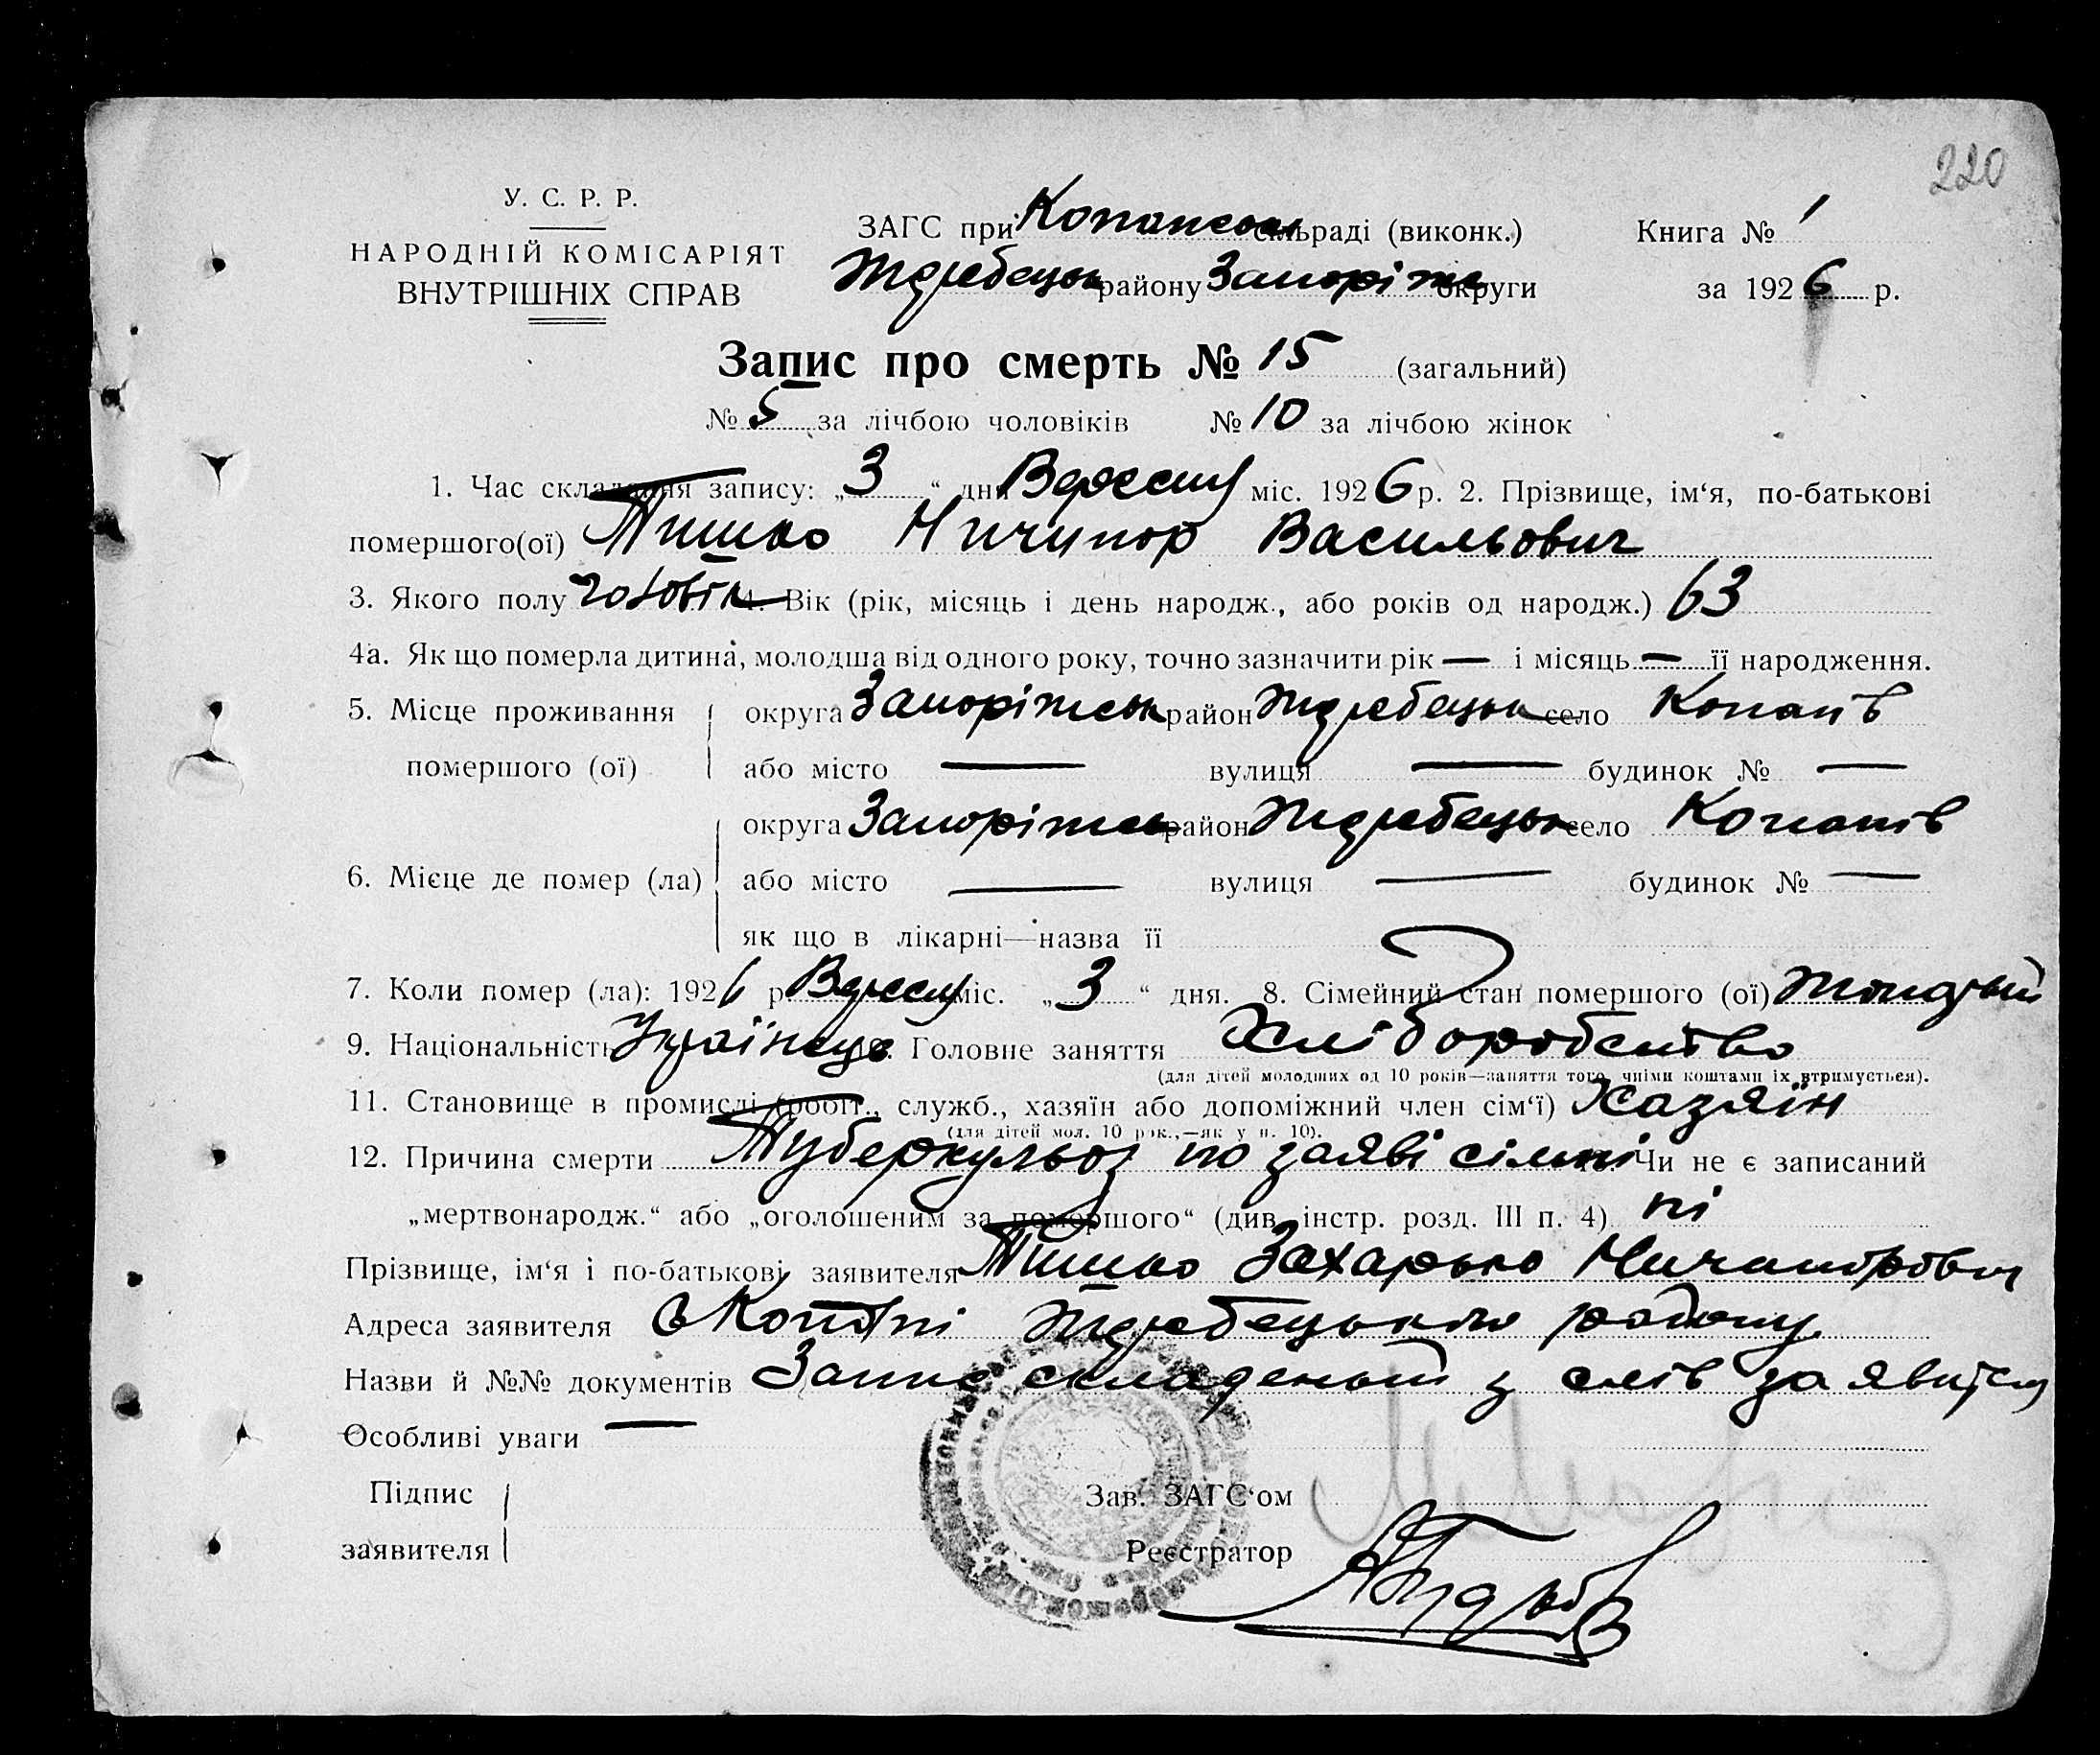 220
У. С. Р. Р.
НАРОДНІЙ КОМІСАРІЯТ
ВНУТРІШНІХ СПРАВ
ЗАГС при Копанськ сільраді (виконк.)
Жеребецьк району Запоріж округи
Книга № 1
за 1926 р.
Запис про смерть № 15 (загальний)
№ 5 за лічбою чоловіків № 10 за лічбою жінок
1. Час складання запису: „3“ дня Вересня міс. 1926 р. 2. Прізвище, ім‘я, по-батькові
помершого(ої) Тишко Ничипор Васильович
3. Якого полу чоловік 4. Вік (рік, місяць і день народж., або років од народж.) 63
4а. Як що померла дитина, молодша від одного року, точно зазначити рік — і місяць — її народження.
5. Місце проживання округа Запоріжськ район Жеребецьк село Копані
помершого (ої) або місто — вулиця — будинок № —
округа Запоріжськ район Жеребецьк село Копані
6. Місце де помер (ла) або місто — вулиця — будинок № —
як що в лікарні—назва її
7. Коли помер (ла): 1926 р. Вересня міс. „3“ дня. 8. Сімейний стан помершого (ої) жонатый
9. Національність Українець 10. Головне заняття Хліборобство
(для дітей молодших од 10 років—заняття того, чиїми коштами їх втримується).
11. Становище в промислі (робіт., служб., хазяїн або допоміжний член сім‘ї) Хазяїн
(для дітей мол. 10 рок.,—як у п. 10).
12. Причина смерти Туберкульоз по заяві сімьі Чи не є записаний
„мертвонародж.“ або „оголошеним за помершого“ (див. інстр. розд. III п. 4) ні
Прізвище, ім‘я і по-батькові заявителя Тишко Захарько Ничипорович
Адреса заявителя с Копані Жеребецького району
Назви й №№ документів Запис складеный з слів заявителя
Особливі уваги —
Підпис
заявителя
Зав. ЗАГС‘ом
Реєстратор